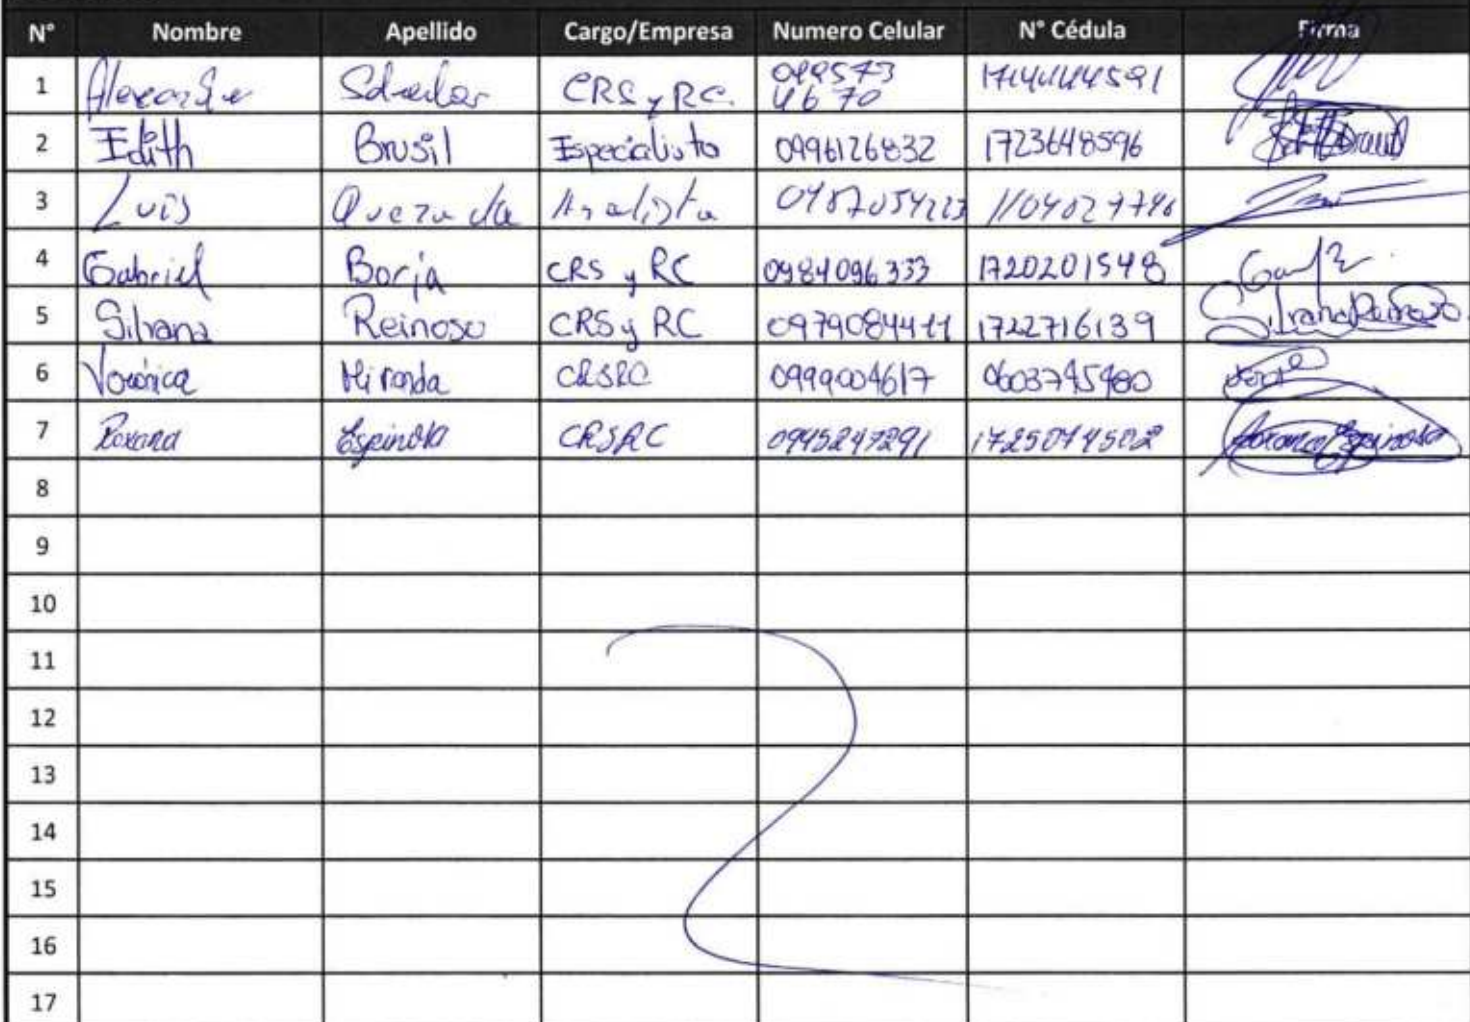 N° Nombre Apellido Cargo/Empresa Numero Celular N° Cédula Firma
1 Alexander Salvador CRS y RC. 099573 4670
2 Edith Brusil Especialista 0996126832 1723648596
3 Luis Quezada Analista
4 Gabriel Borja CRS y RC 0984096333 1720201548
5 Silvana Reinoso CRS y RC 0979084411 1722716139 Silvana Reinoso
6 Verónica Miranda CRSRC 0999004617 0603745980
7 Roxana Espinosa CRSRC 0995247291 1725074502 Roxana Espinosa
8
9
10
11
12
13
14
15
16
17